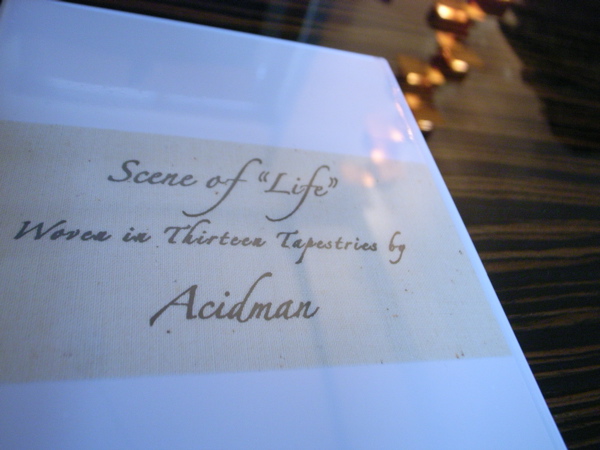 Scene of “Life”
Woven in Thirteen Tapestries by
Acidman